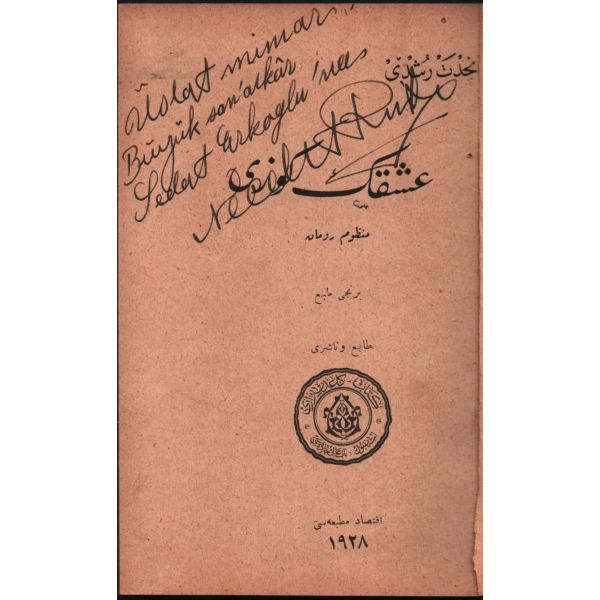 Üstat mimar
Büyük san'atkâr
Sedat Erkoglu'na
Necdet Rüştü
نجدت رشدی
عشقك
منظوم رومان
برنجی طبع
طابع و ناشری
اقتصاد مطبعه‌سی
١٩٢٨